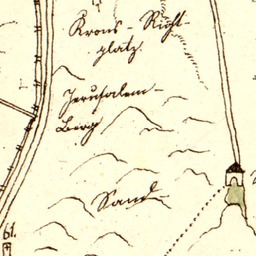 Krons-Richt-
platz.
Jerusalem-
Berg
Sand
61.